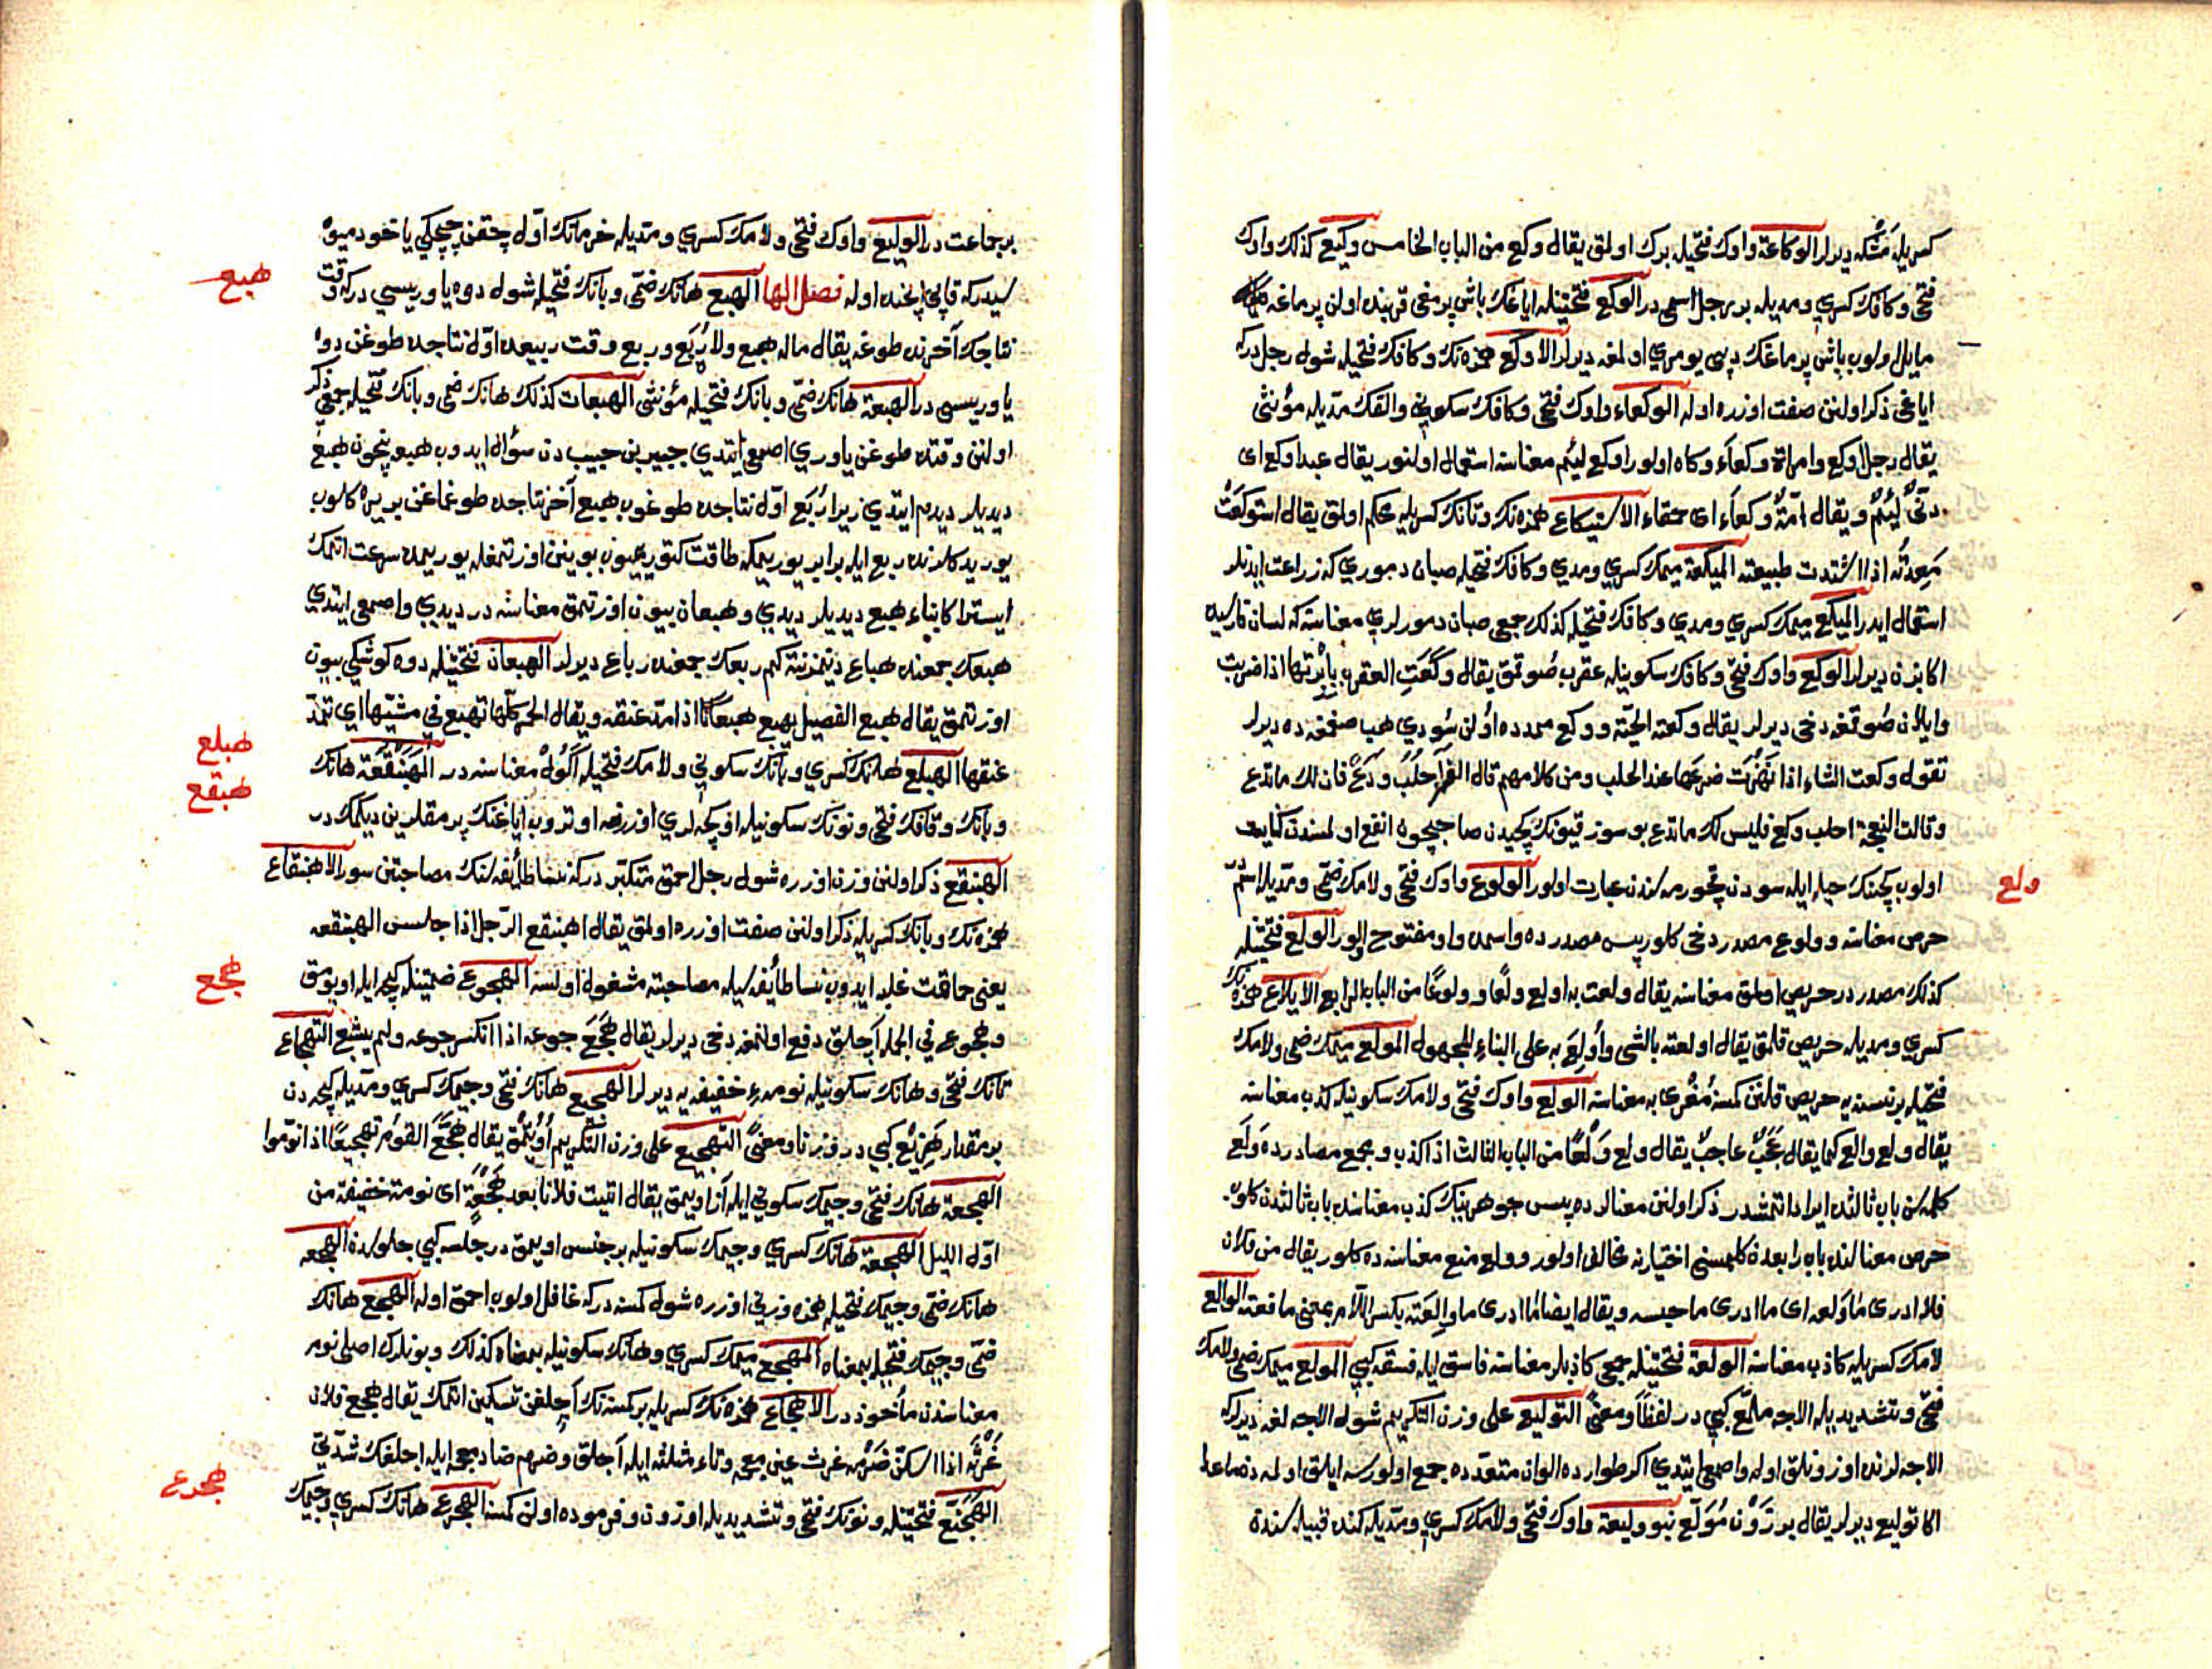 كسريله مشكه ديرلر الوكاعة واوك فتحيله برك اولمق يقال وكع من الباب الخامس وكيع كذلك واوك
فتحى وكافك كسرى ومديله بر رجل اسمى در الوكع فتحتينله اياغك باش پرمغى قربنده اولن پرماغه
مايل اولوب باش پرماغك دبى يومرى اولمغه ديرلر الاوكع همزه نك وكافك فتحيله شول رجل دركه
اياغى ذكر اولنن صفت اوزره اوله الوكعاء واوك فتحى وكافك سكونى والفك مديله مؤنثى
يقال رجل اوكع وامراة وكعاء وكاه اولور اوكع لئيم معناسنه استعمال اولنور يقال عبد اوكع اى
دنئ لئيم ويقال امة وكعاء اى حمقاء الاستيكاع همزه نك وتانك كسريله محكم اولمق يقال استوكعت
معدته اذا اشتدت طبيعته الميكعة ميمك كسرى ومدى وكافك فتحيله صبان دمورى كه زراعت ايدنلر
استعمال ايدر الميكع ميمك كسرى ومدى وكافك فتحيله كذلك جمعى صبان دمورلرى معناسنه كه لسان فارسيده
اكا بزن ديرلر الوكع واوك فتحى وكافك سكونيله عقرب صوقمق يقال وكعت العقرب بابرتها اذا ضربت
وايلان صوقمغه دخى ديرلر يقال وكعته الحية ووكع ممدده اولن سودى هب صغمغه ده ديرلر
تقول وكعت الشاء اذا نهزت ضرعها عند الحلب ومن كلامهم قال العنز احلب ودع فان لك ما تدع
وقالت النعجة احلب وكع فليس لك ما تدع بو سوز قيونك كچيدن صاحبچون انفع اولمسندن كنايت
اولوب كچينك حيله ايله سودن قچورمه سندن عبارت اولور الولوع واوك فتحى ولامك ضمى ومديله اسم در
ولع
حرص معناسنه وولوع مصدر دخى كلور پس مصدرده واسمده واو مفتوح اولور الولع فتحتينله
كذلك مصدر در حريص اولمق معناسنه يقال ولعت به اولع ولعا وولوعا من الباب الرابع الايلاع همزه نك
كسرى ومديله حريص قلمق يقال اولعته بالشى واولع به على البناء للمجهول المولع ميمك ضمى ولامك
فتحيله بر نسنه يه حريص قلنن كسنه مغرى به معناسنه الولع واوك فتحى ولامك سكونيله كذب معناسنه
يقال ولع والع كما يقال عجب عاجب يقال ولع ولعا من الباب الثالث اذا كذب وجمع مصادرده ولع
كلمه سن باب ثالثده ايراد اتمشدر ذكر اولنن معنالرده پس جوهرينك كذب معناسنده باب ثالثدن كلوب
حرص معنالنده باب رابعدن كلمسنى اختيارنه مخالف اولور وولع منع معناسنه ده كلور يقال من فلان
فلا ادرى ما ولعه اى ما ادرى ما حبسه ويقال ايضا ما ادرى ما ولعته بكسر اللام بمعنى ما فعته الوالع
لامك كسريله كاذب معناسنه الولعة فتحتينله جمعى كاذبلر معناسنه فاسق ايله فسقه كبى المولع ميمك ضمى ولامك
فتحى وتشديديله الاجه ملمع كبى در لفظا ومعنى التوليع على وزن التكريم شول الاجه لغه ديرلركه
الاجه لرنده اوزونلق اوله واصمعى ايتدى اكر طوارده الوان متعدده جمع اولورسه ايلق اولمدن ماعدا
اكا توليع ديرلر يقال برذون مولع نبو وليعة واوك فتحى ولامك كسرى ومديله كنده قبيله سندن
بر جماعت در الوليع واوك فتحى ولامك كسرى ومديله خرمانك اول چقن چچكى ياخود ميوه
سيدركه قابى ايچنده اوله فصل الها الهبع هانك ضمى وبانك فتحيله شول دوه ياوريسى دركه وقت
هبع
نتاجك آخرنده طوغه يقال ماله هبع ولا ربع وربع وقت ربيعده اول نتاجده طوغن دوه
ياوريسى در الهبعة هانك ضمى وبانك فتحيله مؤنثى الهبعات كذلك هانك ضمى وبانك فتحيله جمعى ذكر
اولنن وقتده طوغن ياورى اصمعى ايتدى جبير بن حبيب دن سؤال ايدوب هبعه نيچون هبع
ديديلر ديدم ايتدى زيرا ربع اول نتاجده طوغوب هبع آخر نتاجده طوغماغن بر يره كلوب
يوريدكلرنده ربع ايله برابر يوريمكه طاقت كتورميوب بوينن اوزتمغله يوريمده سرعت اتمك
ايستر اكا بناء هبع ديديلر ديدى وهبعان بيون اوزتمق معناسنه در ديدى واصمعى ايتدى
هبعك جمعنده هباع دينمز نته كم ربعك جمعنده رباع ديرلر الهبعان فتحتينله دوه كوشكى بيون
اوزتمق يقال هبع الفصيل يهبع هبعانا اذا مد عنقه ويقال الحمر كلها تهبع في مشيها اى تمد
عنقها الهبلع هانك كسرى وبانك سكونى ولامك فتحيله اكول معناسنه در الهبنقعة هانك
هبلع
هبقع
وبانك وقافك فتحى ونونك سكونيله اوكچه لرى اوزرنه اوتروب اياغنك پرمقلرين ديكمك در
الهبنقع ذكر اولنن وزن اوزره شول رجل احمق متكبر دركه نسا طائفه سنك مصاحبتن سور الاهبنقاع
همزه نك وبانك كسريله ذكر اولنن صفت اوزره اولمق يقال اهبنقع الرجل اذا جلس الهبنقعه
يعنى حماقت غلبه ايدوب نسا طائفه سيله مصاحبته مشغول اولسه الهجوع ضمتينله كيجه ايله اويومق
هجع
وهجوع في الجمله آچلق دفع اولنمغه دخى ديرلر يقال هجع جوعه اذا انكسر جوعه ولم يشبع التهجاع
تانك فتحى وهانك سكونيله نومه خفيفه يه ديرلر الهجيع هانك فتحى وجيمك كسرى ومديله كيجه دن
بر مقدار هزيع كبى در وزنا ومعنى التهجيع على وزن التكريم اويتمق يقال هجع القوم تهجيعا اذا نوموا
الهجعة هانك فتحى وجيمك سكونى ايله آز اويمق يقال اتيت فلانا بعد هجعة اى نومة خفيفة من
اول الليل الهجعة هانك كسرى وجيمك سكونيله بر جنس اويمق در جلسه كبى جلوسدن الهجعه
هانك ضمى وجيمك فتحيله همزه وزنى اوزره شول كسنه دركه غافل اولوب احمق اوله الهجع هانك
ضمى وجيمك فتحيله بمعناه المهجع ميمك كسرى وهانك سكونيله بمعناه كذلك وبونلرك اصلى نوم
معناسندن مأخوذ در الاهجاع همزه نك كسريله بر كسنه نك آچلغن تسكين اتمك يقال هجع فلان
غرثه اذا سكن ضرمه غرث عين معجمه وثاء مثلثه ايله آچلق وضرم ضاد معجمه ايله اچلغك شدتى
الهجنع فتحتينله ونونك فتحى وتشديديله اوزون وفرموده اولن كسنه الهجرع هانك كسرى وجيمك
هجرع